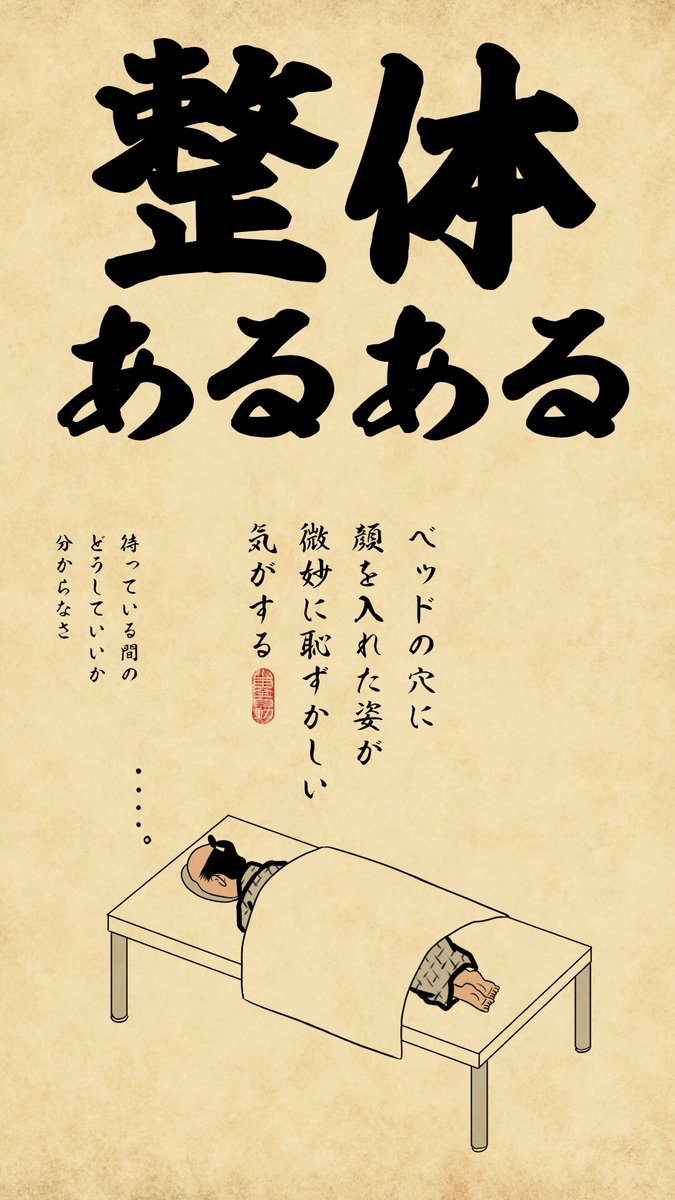 整体
あるある
ベッドの穴に
顔を入れた姿が
微妙に恥ずかしい
気がする
待っている間の
どうしていいか
分からなさ
・・・・・。